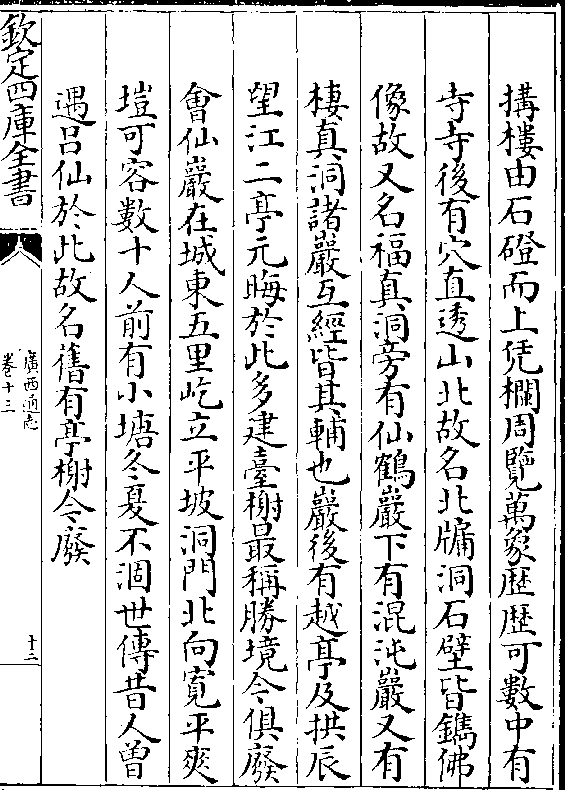 搆樓由石磴而上凭欄周覽萬象歴歴可數中有
寺寺後有穴直透山北故名北牖洞石壁皆鐫佛
像故又名福真洞旁有仙鶴巖下有混沌巖又有
棲真洞諸巖互經皆其輔也巖後有越亭及拱辰
望江二亭元晦於此多建臺榭最稱勝境今俱廢
會仙巖在城東五里屹立平坡洞門北向寛平爽
塏可容數十人前有小塘冬夏不涸世傳昔人曽
遇吕仙於此故名舊有亭榭今廢
欽定四庫全書
廣西通志
卷十三
十二